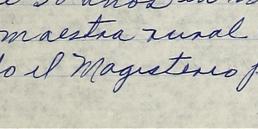 30 años
maestra rural
el Magisterio